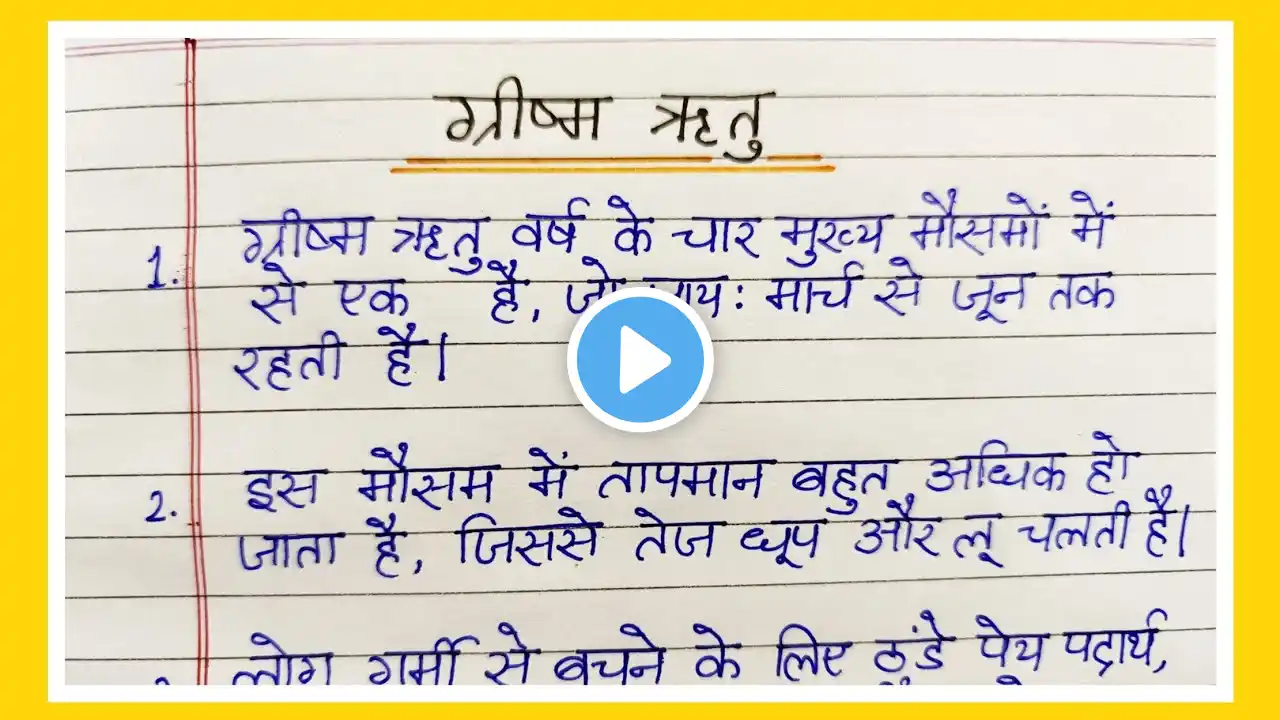 ग्रीष्म ऋतु
1. ग्रीष्म ऋतु वर्ष के चार मुख्य मौसमों में
से एक है, : मार्च से जून तक
रहती है।
2. इस मौसम में तापमान बहुत अधिक हो
जाता है, जिससे तेज धूप और लू चलती है।
लोग गर्मी से बचने के लिए ठंडे पेय पदार्थ,